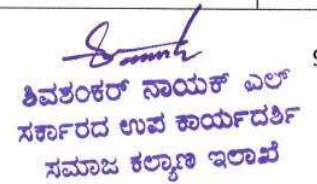 ಶಿವಶಂಕರ್ ನಾಯಕ್ ಎಲ್
ಸರ್ಕಾರದ ಉಪ ಕಾರ್ಯದರ್ಶಿ
ಸಮಾಜ ಕಲ್ಯಾಣ ಇಲಾಖೆ